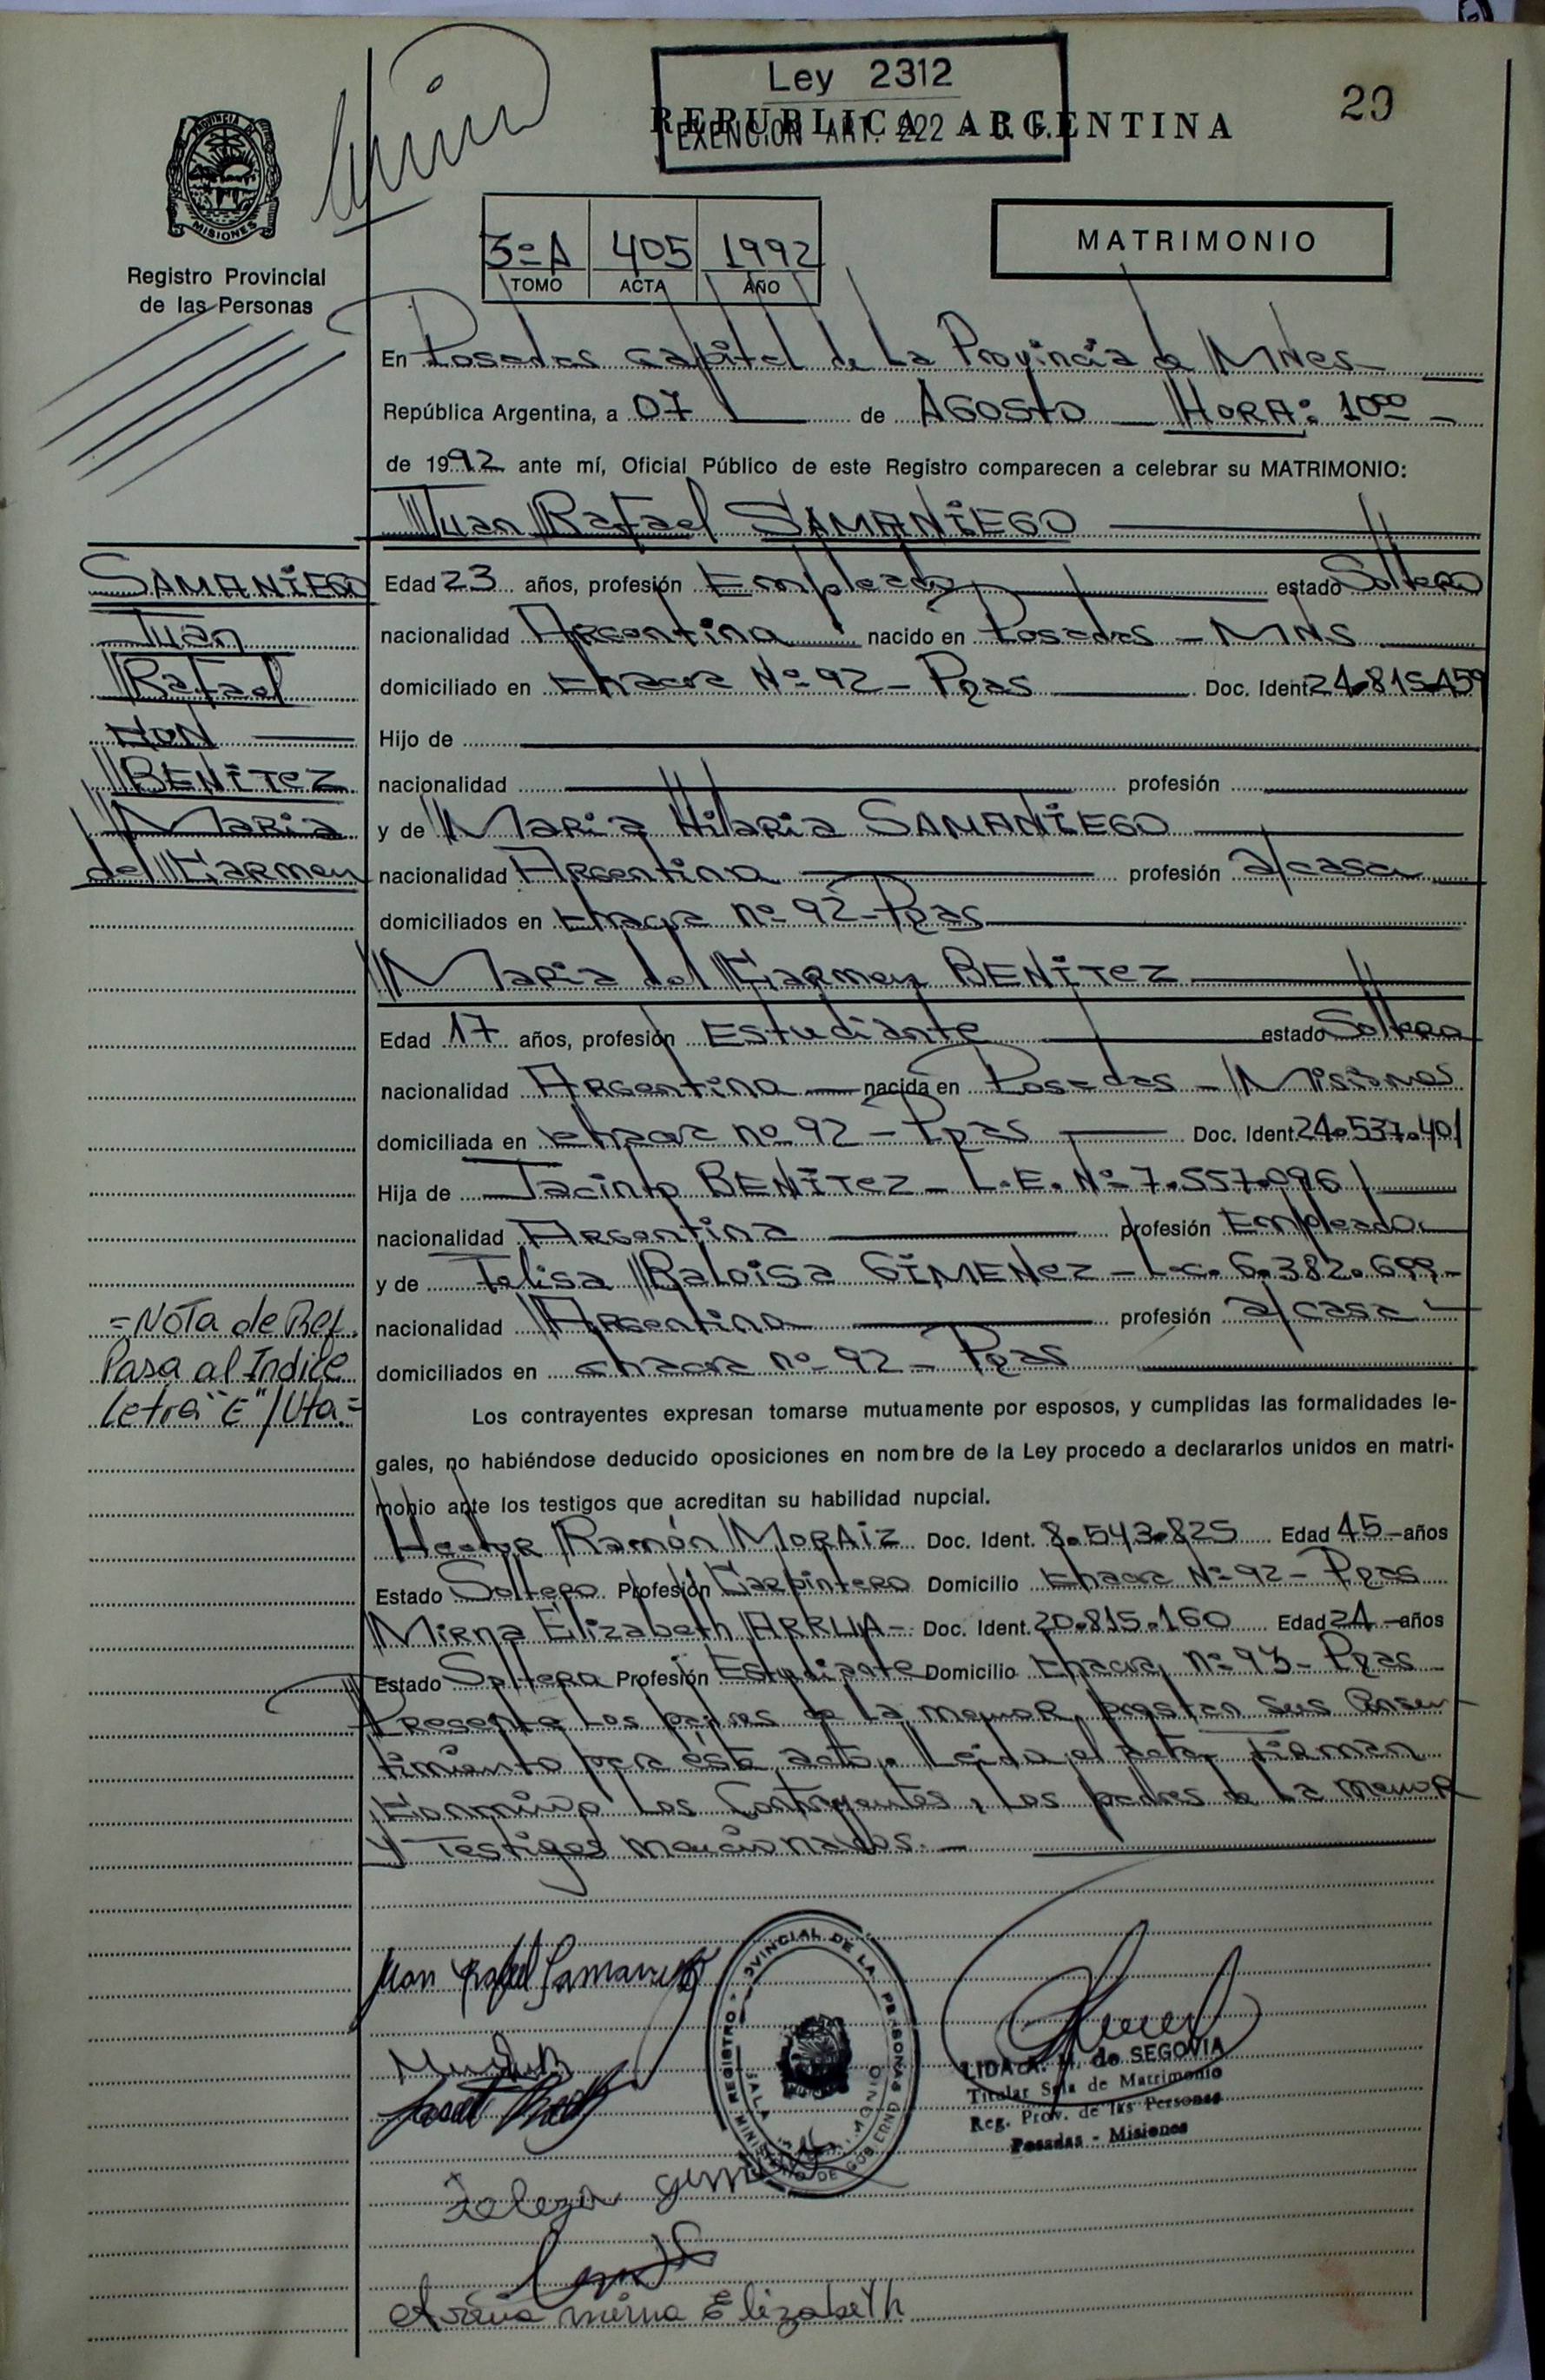 Ley 2312
EXENCION ART. 222
REPUBLICA ARGENTINA
29
PROVINCIA DE
MISIONES
Registro Provincial
de las Personas
3º A 405 1992
TOMO ACTA AÑO
MATRIMONIO
En Posadas Capital de La Provincia de MNes
República Argentina, a 07 de AGOSTO HORA: 10 00
de 1992 ante mí, Oficial Público de este Registro comparecen a celebrar su MATRIMONIO:
Juan Rafael SAMANIEGO
SAMANIEGO
Juan
Rafael
CON
BENITEZ
Maria
del Carmen
Edad 23 años, profesión Empleado estado Soltero
nacionalidad Argentina nacido en Posadas - MNS
domiciliado en Chacra Nº 92 - Pdas Doc. Ident. 24.815.459
Hijo de
nacionalidad profesión
y de Maria Hilaria SAMANIEGO
nacionalidad Argentina profesión a/casa
domiciliados en Chacra nº 92 - Pdas
Maria del Carmen BENITEZ
Edad 17 años, profesión Estudiante estado Soltera
nacionalidad Argentina nacida en Posadas - Misiones
domiciliada en chacra nº 92 - Pdas Doc. Ident. 24.537.401
Hija de Jacinto BENITEZ - L.E. Nº 7.557.096
nacionalidad Argentina profesión Empleado
y de Felisa Raloisa GIMENEZ - L.C. 6.382.699 -
nacionalidad Argentina profesión a/casa
domiciliados en chacra nº 92 - Pdas
=Nota de Ref.
Pasa al Indice
Letra "E"/Uta.=
Los contrayentes expresan tomarse mutuamente por esposos, y cumplidas las formalidades le-
gales, no habiéndose deducido oposiciones en nombre de la Ley procedo a declararlos unidos en matri-
monio ante los testigos que acreditan su habilidad nupcial.
Hector Ramón MORAIZ Doc. Ident. 8.543.825 Edad 45 años
Estado Soltero Profesión Carpintero Domicilio Chacra Nº 92 - Pdas
Mirna Elizabeth ARRUA - Doc. Ident. 20.815.160 Edad 24 años
Estado Soltera Profesión Estudiante Domicilio Chacra nº 93 - Pdas
Presente Los padres de La menor, prestan sus Consen-
timiento para éste acto. Leida el acta, Firman
Conmigo Los Contrayentes, Los padres de La menor
y Testigos mencionados.
Juan Rafael Samaniego
REGISTRO PROVINCIAL DE LAS PERSONAS
MINISTERIO DE GOBIERNO
SALA
LIDA A. de SEGOVIA
Titular Sala de Matrimonio
Reg. Prov. de las Personas
Posadas - Misiones
Arrua mirna Elizabeth